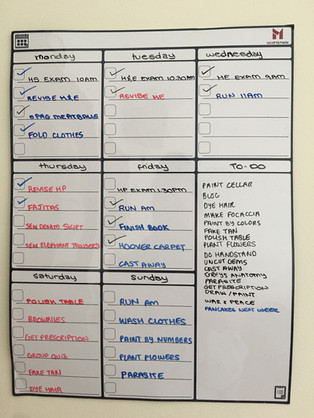 monday
HS EXAM 10AM
REVISE H&E
SPAG MEATBALLS
FOLD CLOTHES
tuesday
H&E EXAM 10.30AM
REVISE ME
wednesday
ME EXAM 9AM
RUN 11AM
thursday
REVISE HP
FAJITAS
SEW
SEW ELEPHANT TROUSERS
friday
HP EXAM 1.30PM
RUN AM
FINISH BOOK
HOOVER CARPET
CAST AWAY
TO-DO
PAINT CELLAR
BLOG
DYE HAIR
MAKE FOCACCIA
PAINT BY COLORS
FAKE TAN
POLISH TABLE
PLANT FLOWERS
DO HANDSTAND
UNCUT GEMS
CAST AWAY
GREYS ANATOMY
PARASITE
GET PRESCRIPTION
DRAW / PAINT
WAR & PEACE
PANCAKES NEXT WEEK
saturday
POLISH TABLE
BROWNIES
GET PRESCRIPTION
GROUP QUIZ
FAKE TAN
DYE HAIR
sunday
RUN AM
WASH CLOTHES
PAINT BY NUMBERS
PLANT FLOWERS
PARASITE